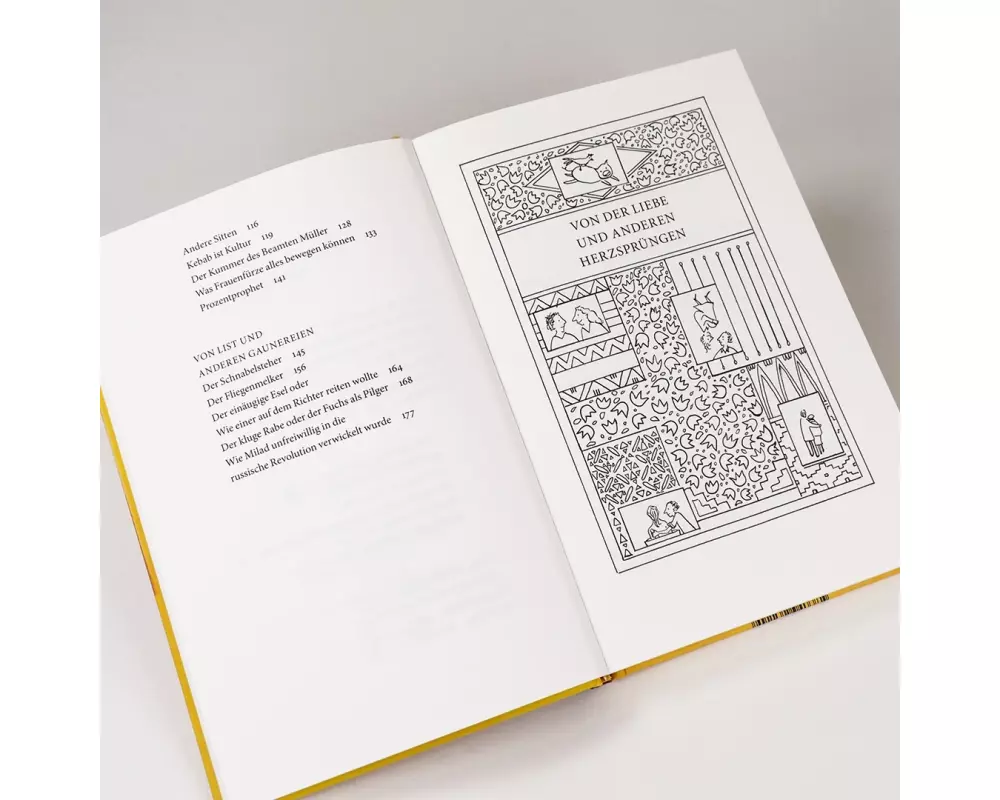 Andere Sitten 116
Kebab ist Kultur 119
Der Kummer des Beamten Müller 128
Was Frauenfürze alles bewegen können 133
Prozentprophet 141
VON LIST UND
ANDEREN GAUNEREIEN
Der Schnabelsteher 145
Der Fliegenmelker 156
Der einäugige Esel oder
Wie einer auf dem Richter reiten wollte 164
Der kluge Rabe oder der Fuchs als Pilger 168
Wie Milad unfreiwillig in die
russische Revolution verwickelt wurde 177
VON DER LIEBE
UND ANDEREN
HERZSPRÜNGEN